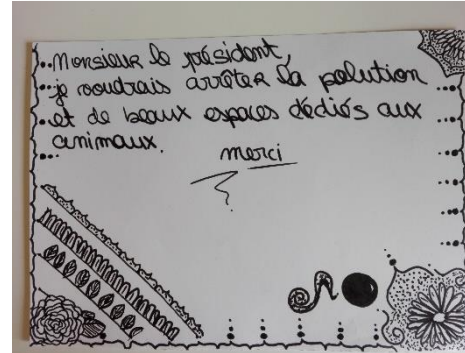 Monsieur le président,
je voudrais arrêter la polution
et de beaux espaces dédiés aux
animaux.
merci